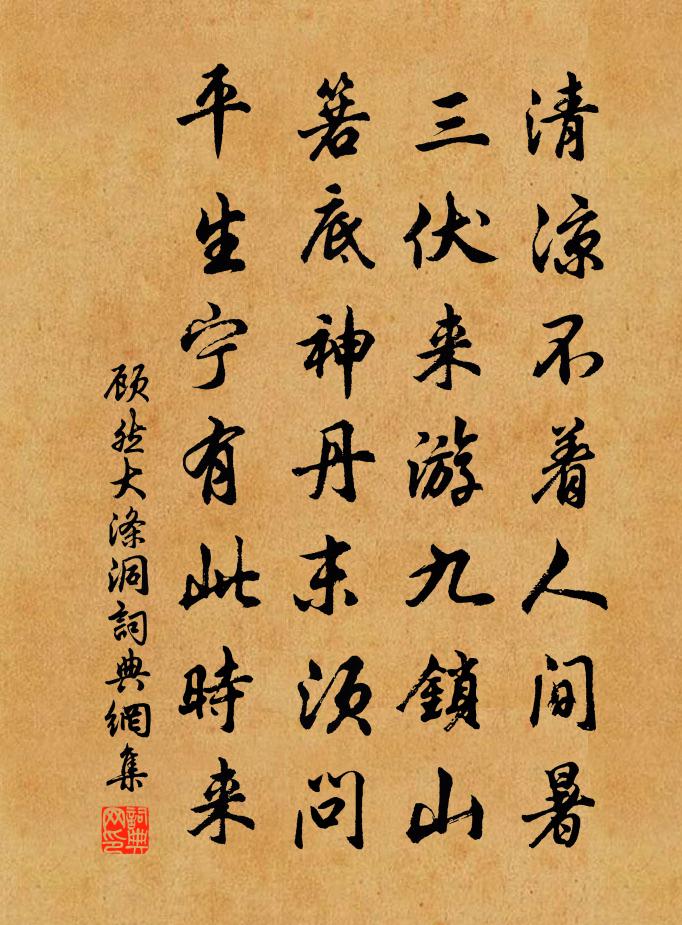 清涼不着人间暑
三伏来游九鎖山
箬底神丹未须问
平生宁有此時来
顾然大涤洞詞典網集
詞典网印